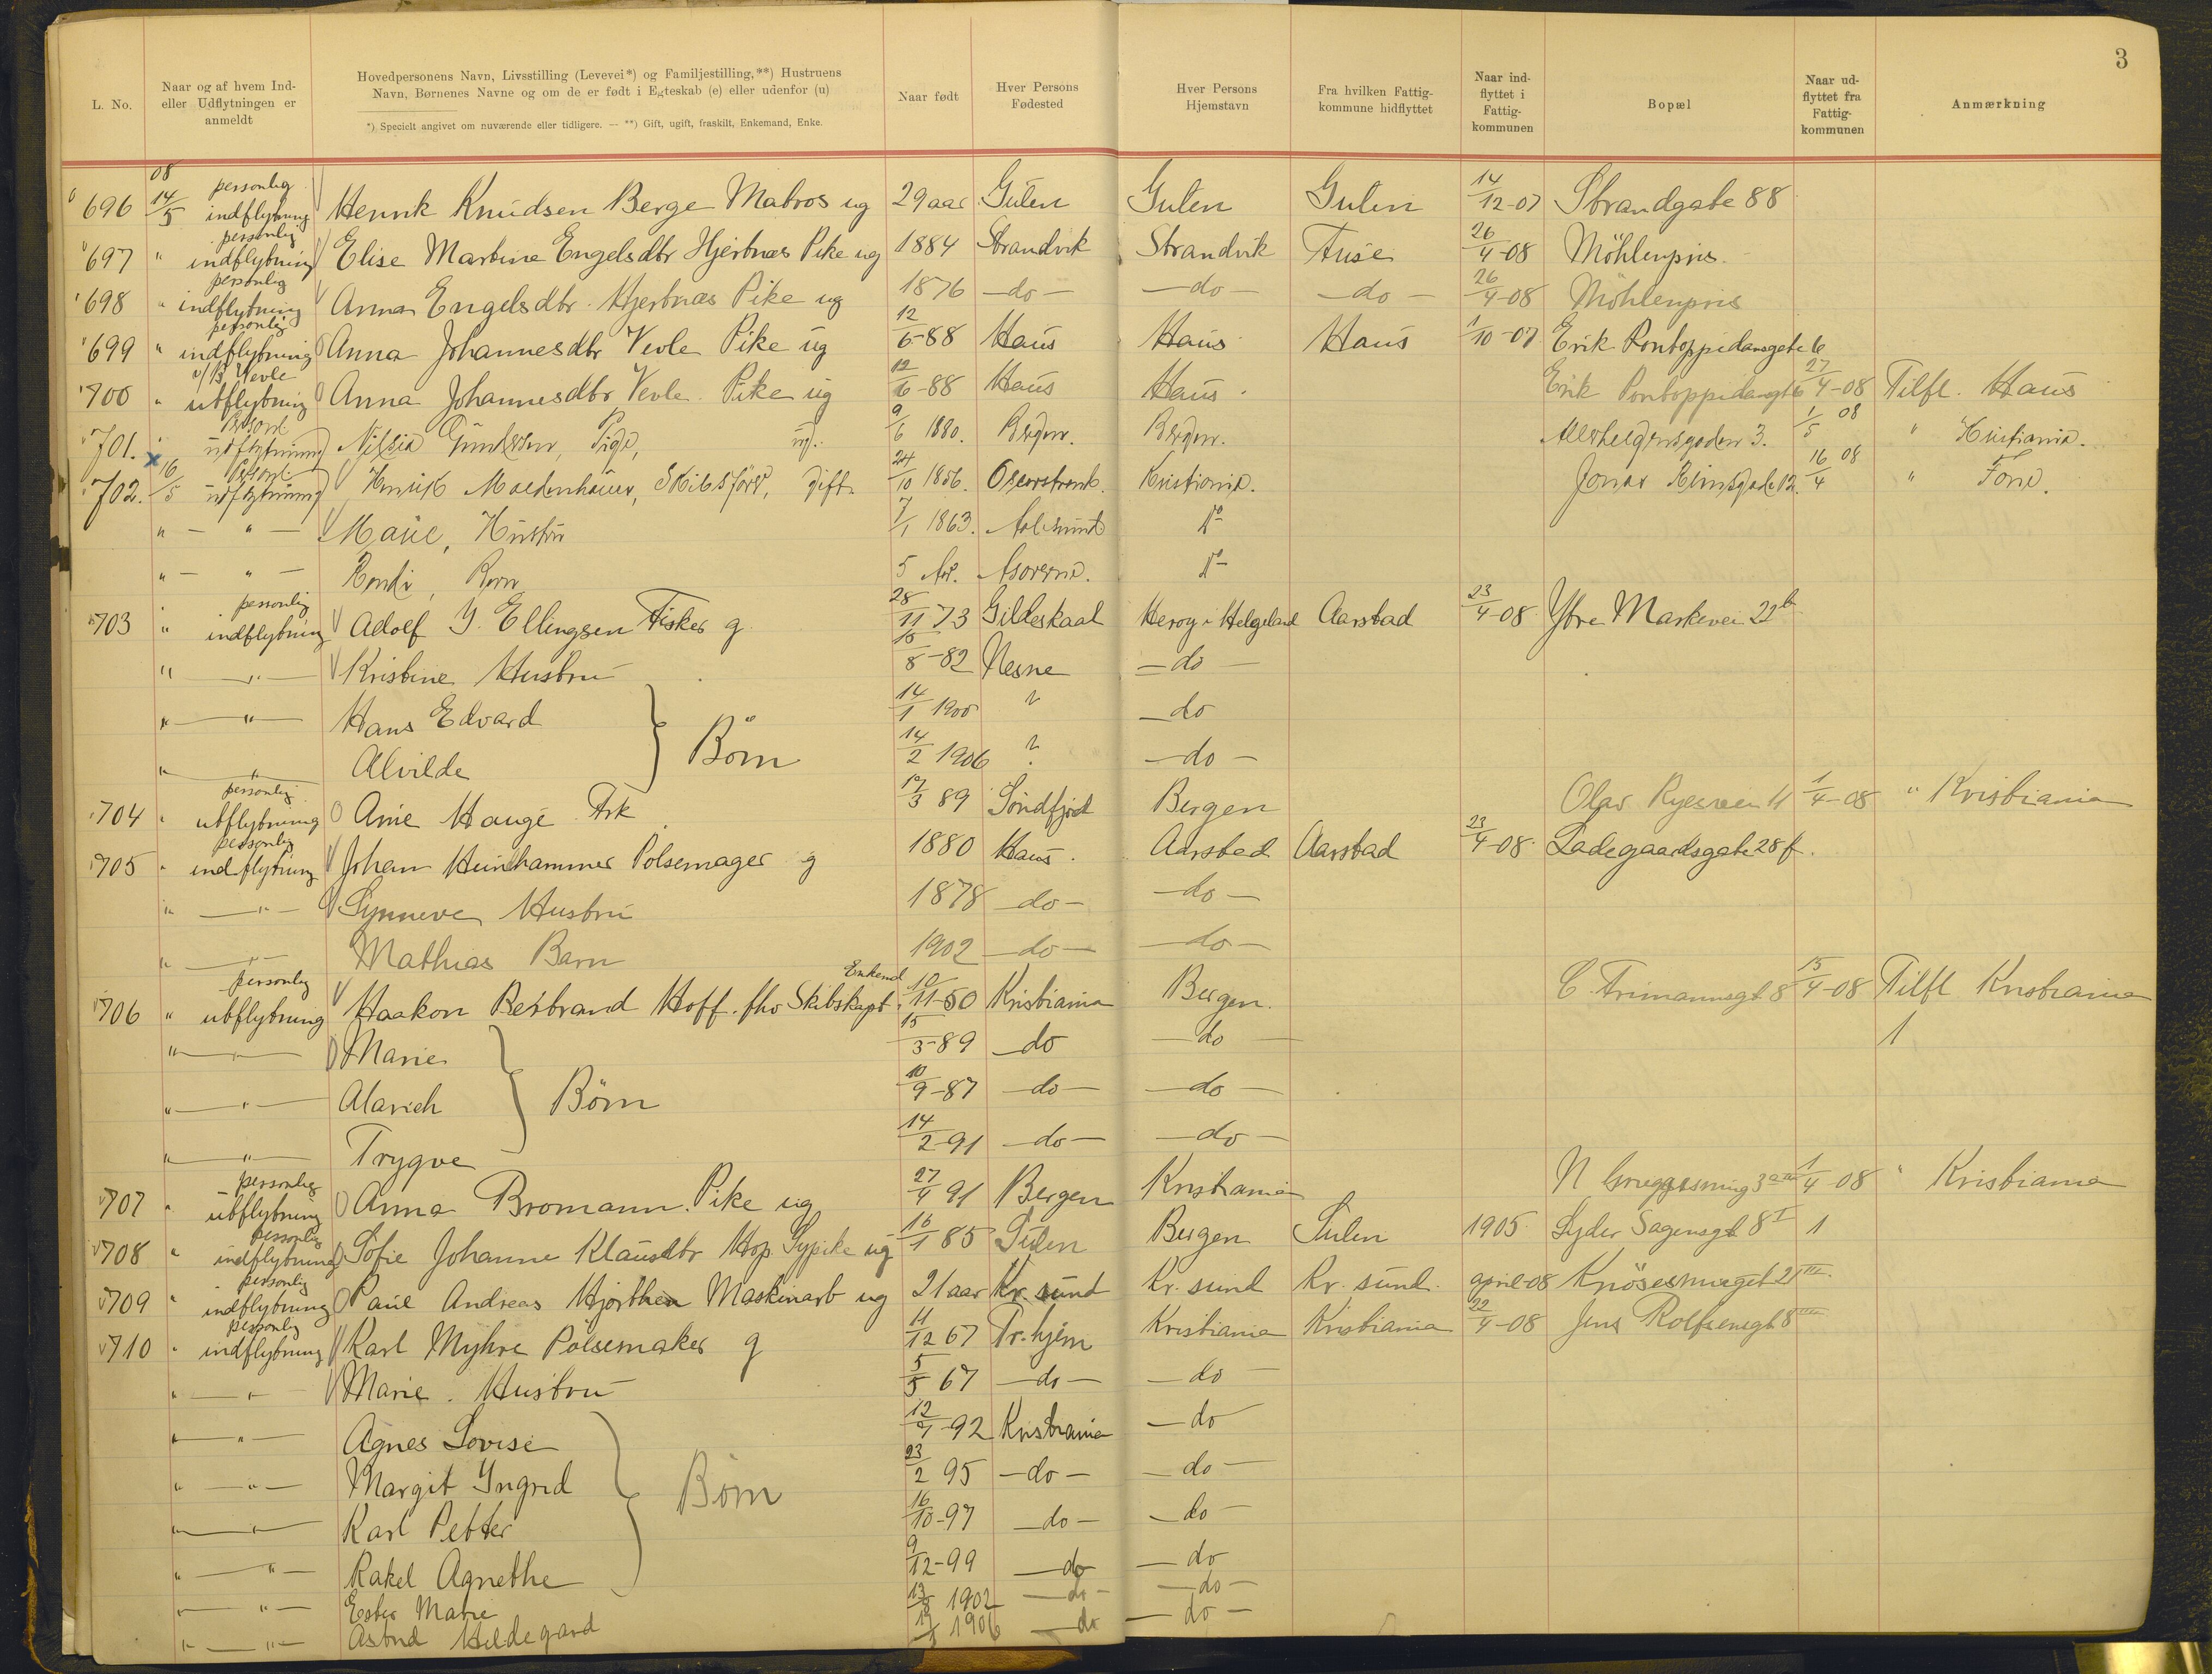 3
L. No. | Naar og af hvem Ind- eller Udflytningen er anmeldt | Hovedpersonens Navn, Livsstilling (Levevei*) og Familjestilling,**) Hustruens Navn, Børnenes Navne og om de er født i Egteskab (e) eller udenfor (u) | Naar født | Hver Persons Fødested | Hver Persons Hjemstavn | Fra hvilken Fattig- kommune hidflyttet | Naar ind- flyttet i Fattig- kommunen | Bopæl | Naar ud- flyttet fra Fattig- kommunen | Anmærkning
*) Specielt angivet om nuværende eller tidligere. — **) Gift, ugift, fraskilt, Enkemand, Enke.
696 08 14/5 personlig indflytning Henrik Knudsen Berge Matros ug 29 aar Gulen Gulen Gulen 14/12-07 Strandgate 88
697 " personlig indflytning Elise Martine Engelsdtr Hjertnæs Pike ug 1884 Strandvik Strandvik Fuse 26/4-08 Möhlenpris
698 " personlig indflytning Anna Engelsdtr. Hjertnæs Pike ug 1876 -do- -do- -do- 26/4-08 Möhlenpris
699 " personlig indflytning Anna Johannesdtr Vevle Pike ug 12/6-88 Haus Haus Haus 1/10-07 Erik Pontoppidansgate 6
700 " v/B. Vevle utflytning Anna Johannesdtr Vevle Pike ug 12/6-88 Haus Haus Erik Pontoppidansgt 6 27/4-08 Tilfl. Haus
701. " Personl udflytning Pige, ug. 9/6 1880. Bergen. Bergen. Allehelgensgaden 3. 1/5 08 " Kristiania.
702. 16/5 Personl udflytning Henrik Moldenhauer, Skibsfører, gift 24/10 1856. Kristiania. Jonas Reinsgade 12. 16/4 08 "
" - " - Hustru 7/1 1863. Aalesund Do
" - " - Barn 5 Do
703 " personlig indflytning Adolf J. Ellingsen Fisker g. 28/11 73 Gildeskaal Herøy i Helgeland Aarstad 23/4-08 Ytre Markevei 22b
" - " - Kristine Hustru 8-82 Nesne -do-
" - " - Hans Edvard 14/1 1900 " -do
Börn
" - " - Alvilde 14/2 1906 " -do-
704 " personlig utflytning Anie Hauge Frk 3 89 Söndfjord Bergen Olav Ryesvei 11 1/4-08 " Kristiania
705 " personlig indflytning Johan Heinhammer Pölsemager g 1880 Haus. Aarstad Aarstad 23/4-08 Ladegaardsgate 28 f.
" - " - Synneve Hustru 1878 -do- -do-
" - " - Mathias Barn 1902 -do- -do-
706 " personlig utflytning Haakon Hoff. fhv Skibskapt. Enkemd 10/11-50 Kristiania Bergen. 15/4-08 Tilfl Kristiania
" - " - Marie 15/3-89 -do -do-
" - " - Alarich Börn 10/9-87 -do- -do-
" - " - Trygve 14/2-91 -do- -do-
707 " personlig utflytning Anna Bromann. Pike ug 27/4 91 Bergen Kristiania 1/4-08 " Kristiania
708 " personlig indflytning Sofie Johanne Klausdtr Hop. Sypike ug 16/1 85 Bergen 1905 Lyder Sagensgt 8 I
709 " personlig indflytning Paul Andreas Hjorthen Maskinarb ug 21 aar Kr. sund Kr. sund Kr. sund. april-08 Knösesmuget 21 III
710 " personlig indflytning Karl Myhre Pölsemaker g 11/12 67 Tr.hjem Kristiania Kristiania 22/4-08 Jens Rolfsensgt 8 III
" - " - Marie. Hustru 5/5 67 -do- -do-
" - " - Agnes Lovise 92 Kristiania -do
" - " - Margit Ingrid 23/2 95 -do- -do-
Börn
" - " - Karl Petter 16/10-97 -do- -do-
" - " - Rakel Agnethe 9/12-99 -do -do
" - " - Ester Marie 1902 -do- -do-
" - " - Astrid Hildegard 1906 -do -do-